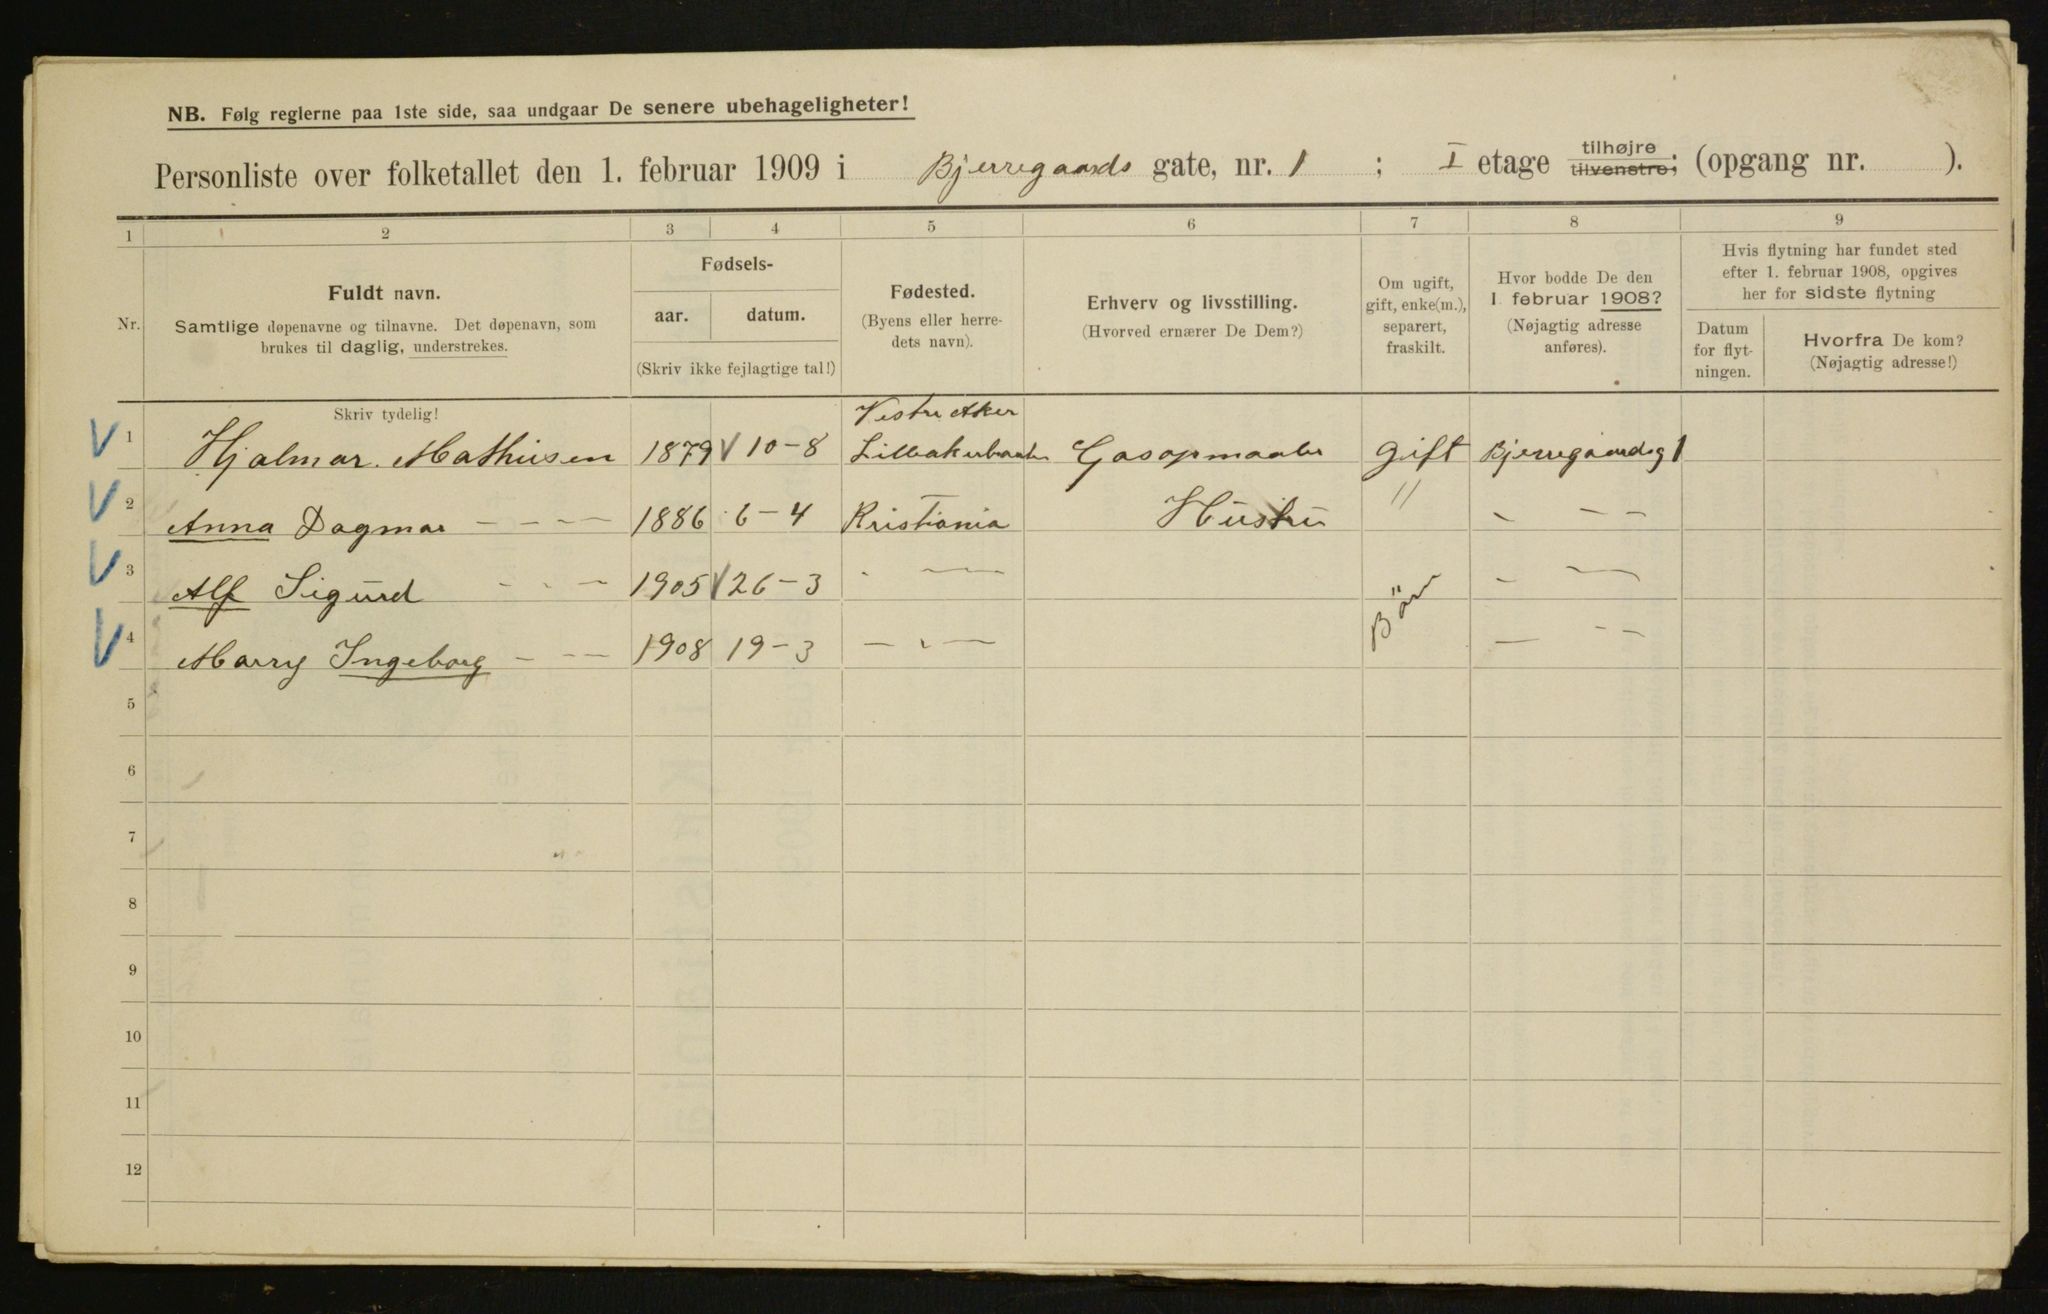 NB. Følg reglerne paa 1ste side, saa undgaar De senere ubehageligheter!
Personliste over folketallet den 1. februar 1909 i Bjerregaards gate, nr. 1 ; I etage tilhøjre tilvenstre; (opgang nr. ).
1 2 3 4 5 6 7 8 9
Nr.
Fuldt navn.
Samtlige døpenavne og tilnavne. Det døpenavn, som
brukes til daglig, understrekes.
Fødsels-
aar. datum.
(Skriv ikke fejlagtige tal!)
Fødested.
(Byens eller herre-
dets navn).
Erhverv og livsstilling.
(Hvorved ernærer De Dem?)
Om ugift,
gift, enke(m.),
separert,
fraskilt.
Hvor bodde De den
1. februar 1908?
(Nøjagtig adresse
anføres).
Hvis flytning har fundet sted
efter 1. februar 1908, opgives
her for sidste flytning
Datum
for flyt-
ningen.
Hvorfra De kom?
(Nøjagtig adresse!)
Skriv tydelig!
Vestre Aker
V 1 Hjalmar. Mathisen 1879 V 10-8 Gasopmaaler gift Bjerregaardsg 1
V 2 Anna Dagmar - - - - 1886 6-4 Kristiania Hustru " - - -
V 3 Alf Sigurd - - - 1905 V 26-3 - - - -
V 4 Marry Ingeborg - - - 1908 19-3 - - - Börn - - -
5
6
7
8
9
10
11
12